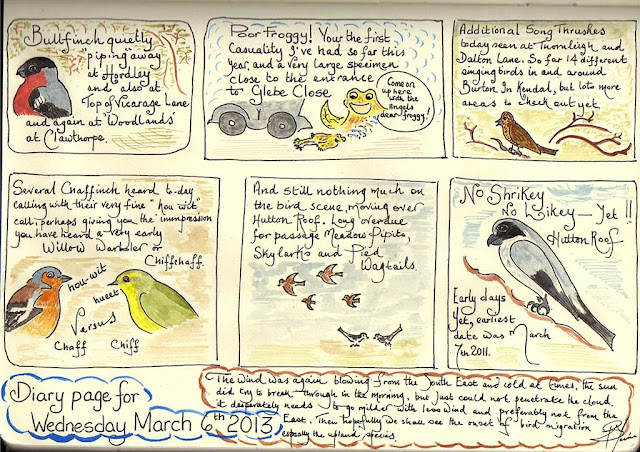 Bullfinch quietly
"piping" away
at Hordley
and also at
Top of Vicarage Lane
and again at "Woodlands"
at Clawthorpe.
Poor Froggy! Your the first
Casuality I've had so far this
year, and a very large specimen
close to the entrance
to Glebe Close
Come on
up here
with the
Angels
dear froggy!
Additional Song Thrushes
today seen at Thornleigh and
Dalton Lane. So far 14 different
singing birds in and around
Burton In Kendal, but lots more
areas to check out yet.
Several Chaffinch heard to-day
calling with their very fine "hou wit"
call, perhaps giving you the immpression
you have heard a very early
Willow Warbler or
Chiffchaff.
hou-wit
hueet
Versus
Chaff
Chiff
And still nothing much on
the bird scene, moving over
Hutton Roof. Long overdue
for passage Meadow Pipits,
Skylarks and Pied
Wagtails.
No Shrikey
No Likey - Yet!!
Hutton Roof
Early days
yet, earliest
date was March
7th 2011.
Diary page for
Wednesday March 6th 2013
The wind was again blowing from the South East and cold at times, the sun
did try to break through in the morning, but just could not penetrate the cloud.
it desperately needs to go milder with less wind and preferably not from the
East. Then hopefully we shall see the onset of bird migration
especially the upland species.